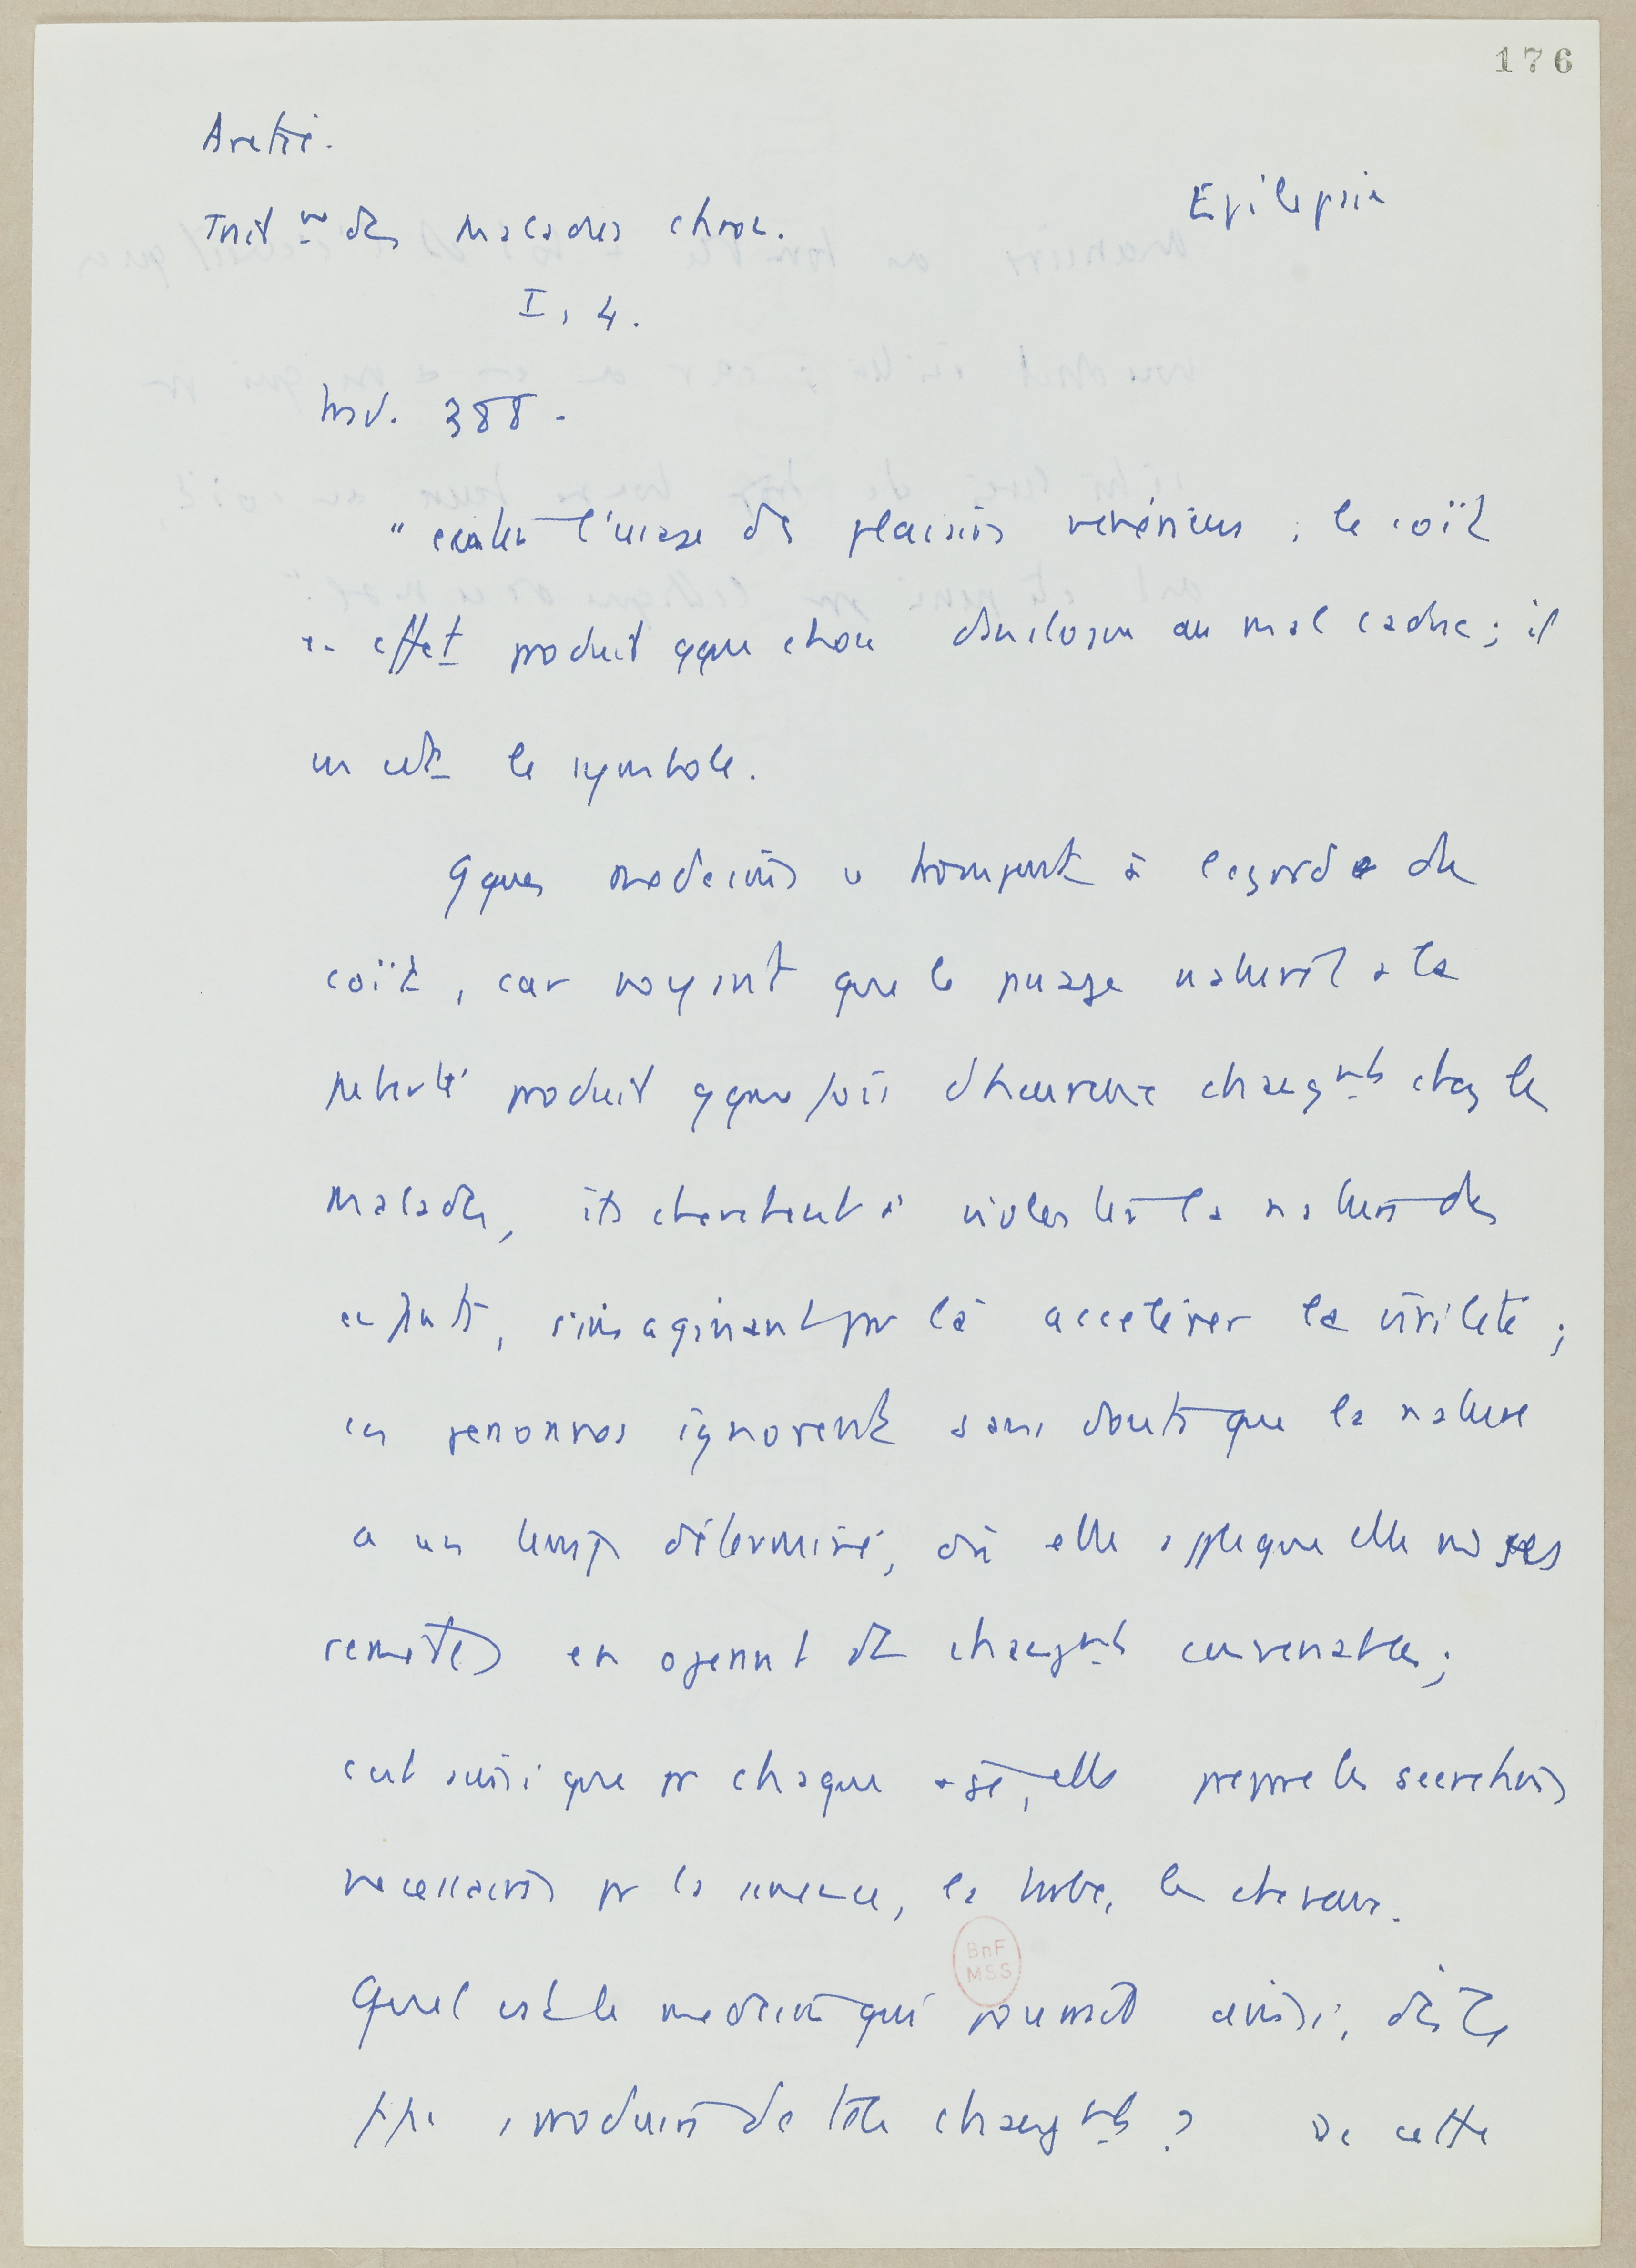 176
Arétée.
Epilepsie
Trait mt des maladies chron.
I, 4.
trad. 388.
" eviter l'usage des plaisirs vénériens ; le coït
en effet produit qque chose d'analogue au mal caduc ; il
en est le symbole.
Qques médecins se trompent à l'égard du
coït, car voyant que le passage naturel à la
puberté produit qque fois d'heureux changmts chez les
malades, ils cherchent à violenter la nature des
enfants, s'imaginant par là accélérer la virilité ;
ces personnes ignorent sans doute que la nature
a un temps déterminé, où elle applique elle m ses
remèdes en opérant des changmts convenables ;
c'est ainsi que pr chaque âge, elle prépare les sécrétions
nécessaires pr la semence, la barbe, les cheveux.
Quel est le médecin qui pourrait ainsi, dès le
ppe, produire de tels changmts ? De cette
BnF
MSS